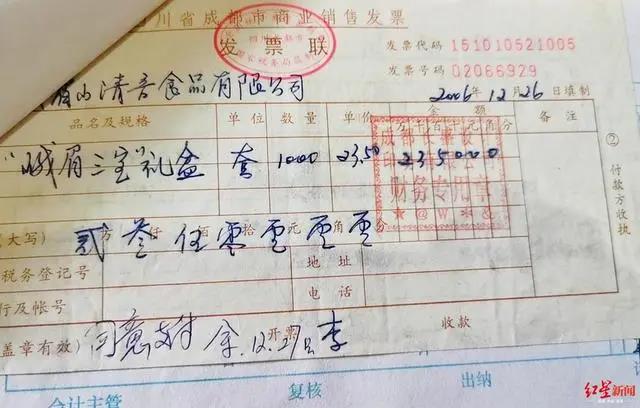 川省成都市商业销售发票
发票联
发票代码 151010521005
发票号码 02066929
眉山清音食品有限公司
2006年12月26日填制
品名及规格 单位 数量 单价 金额 备注
万千百十元角分
"峨眉三宝"礼盒 套 1000 23.50 2350000
财务专用章
(大写) 贰万叁仟伍百零拾零元零角零分
税务登记号 地址
行及帐号 电话
盖章有效) 开票 收款
同意支付 余 12.27日 李
② 付款方收执
会计主管 复核 出纳
红星新闻